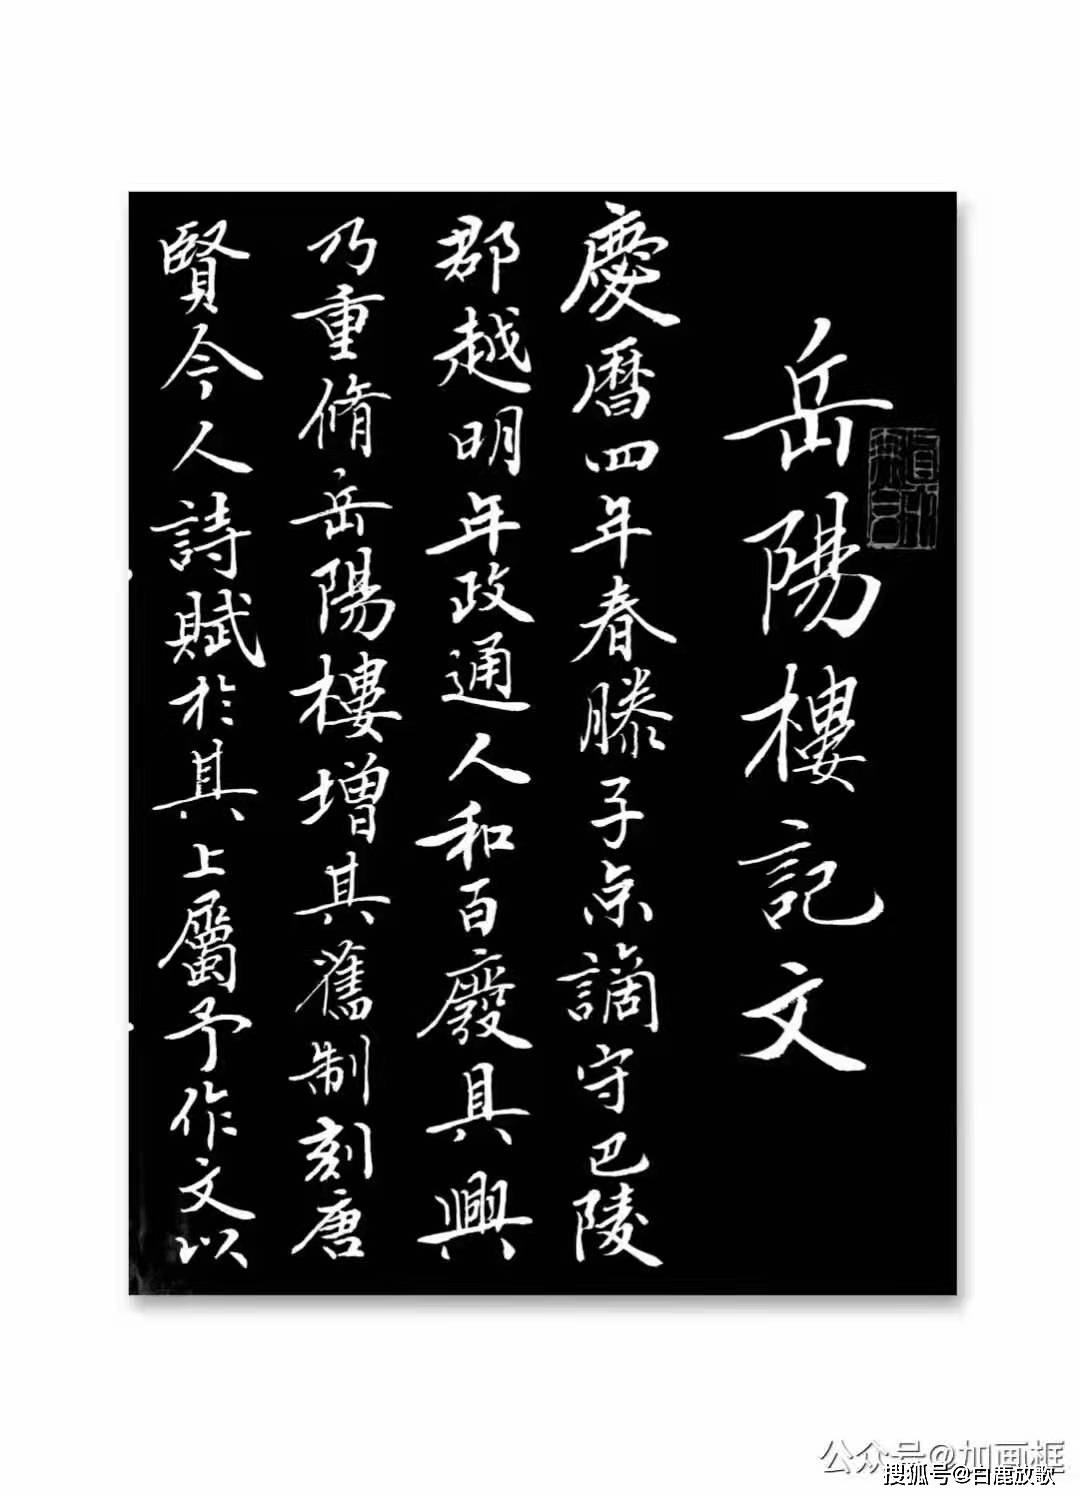 岳陽樓記文
慶曆四年春滕子京謫守巴陵
郡越明年政通人和百廢具興
乃重脩岳陽樓增其舊制刻唐
賢今人詩賦於其上屬予作文以
公众号@加画框
搜狐号@白鹿放歌